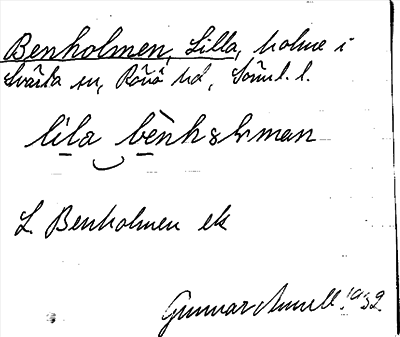 Benholmen, Lilla, holme i
Svärta sn, Rönö hd, Söml. l.
lila bènhålman
L. Benholmen ek
Gunnar 1932